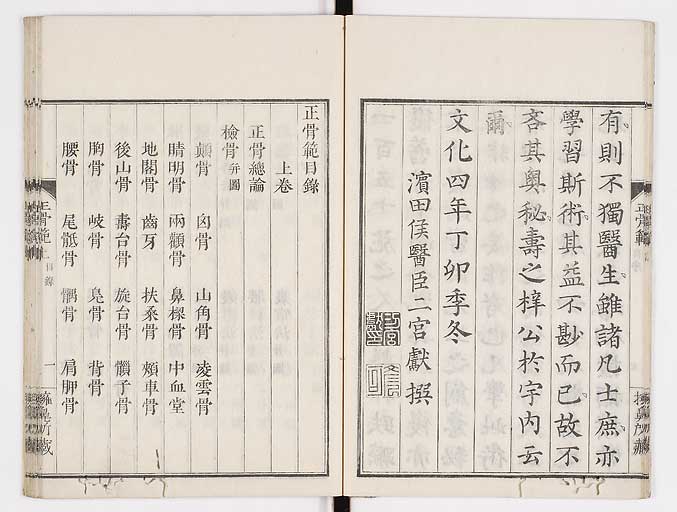 有則不獨醫生雖諸凡士庶亦
學習斯術其益不尠而已故不
吝其奧秘壽之梓公於宇内云
爾
文化四年丁卯季冬
濱田侯醫臣二宮獻撰
正骨範
正骨範目錄
上卷
正骨總論
檢骨并圖
顛骨 囟骨 山角骨 凌雲骨
睛明骨 兩顴骨 鼻梁骨 中血堂
地閣骨 齒牙 扶桑骨 頰車骨
後山骨 壽台骨 旋台骨 髃子骨
胸骨 岐骨 鳧骨 背骨
腰骨 尾骶骨 髃骨 肩胛骨
正骨範上 目錄 一